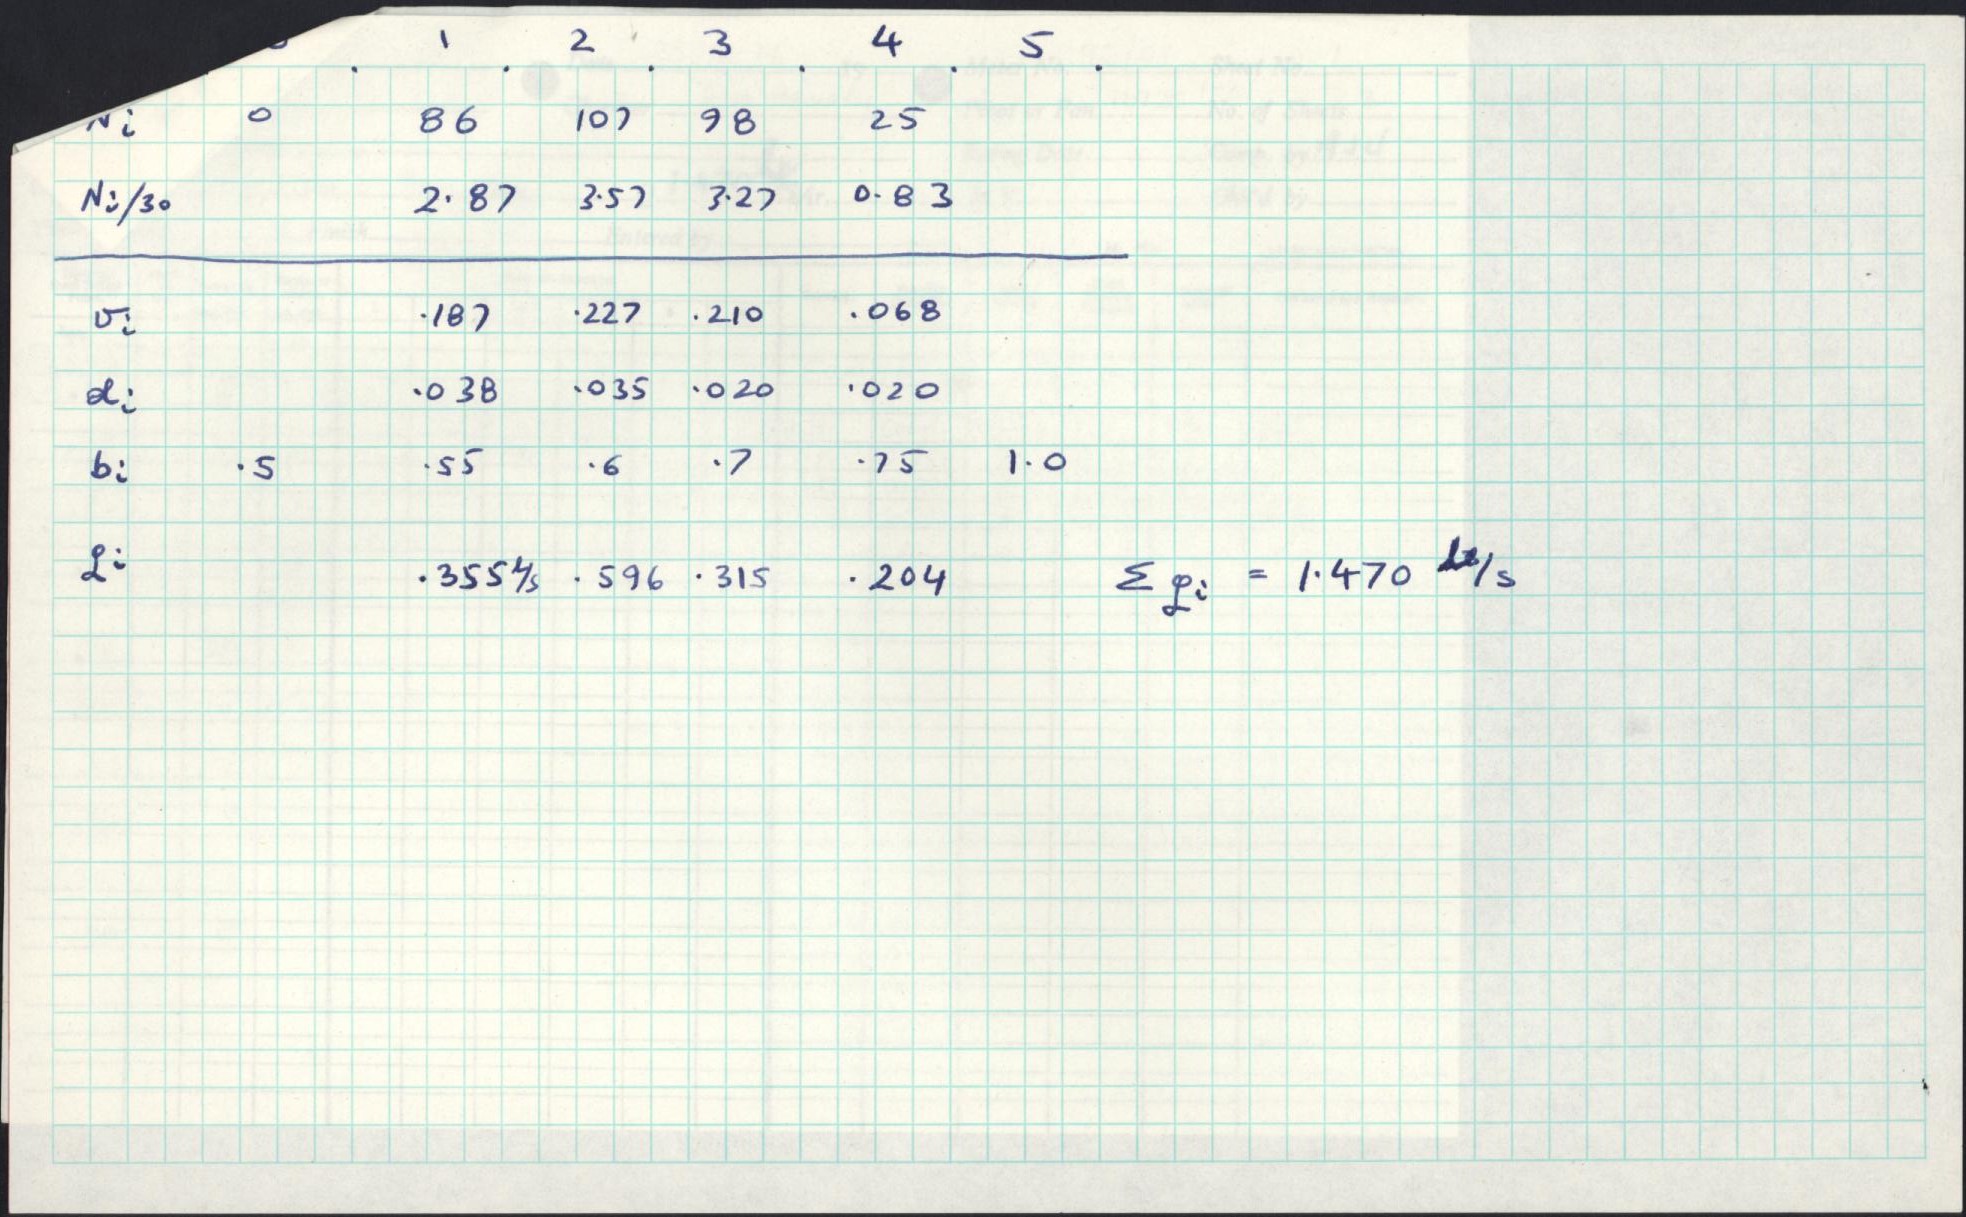 1 2 3 4 5
Ni 0 86 107 98 25
Ni/30 2.87 3.57 3.27 0.83
vi .187 .227 .210 .068
di .038 .035 .020 .020
bi .5 .55 .6 .7 .75 1.0
qi .355 L/s .596 .315 .204 Σqi = 1.470 /s